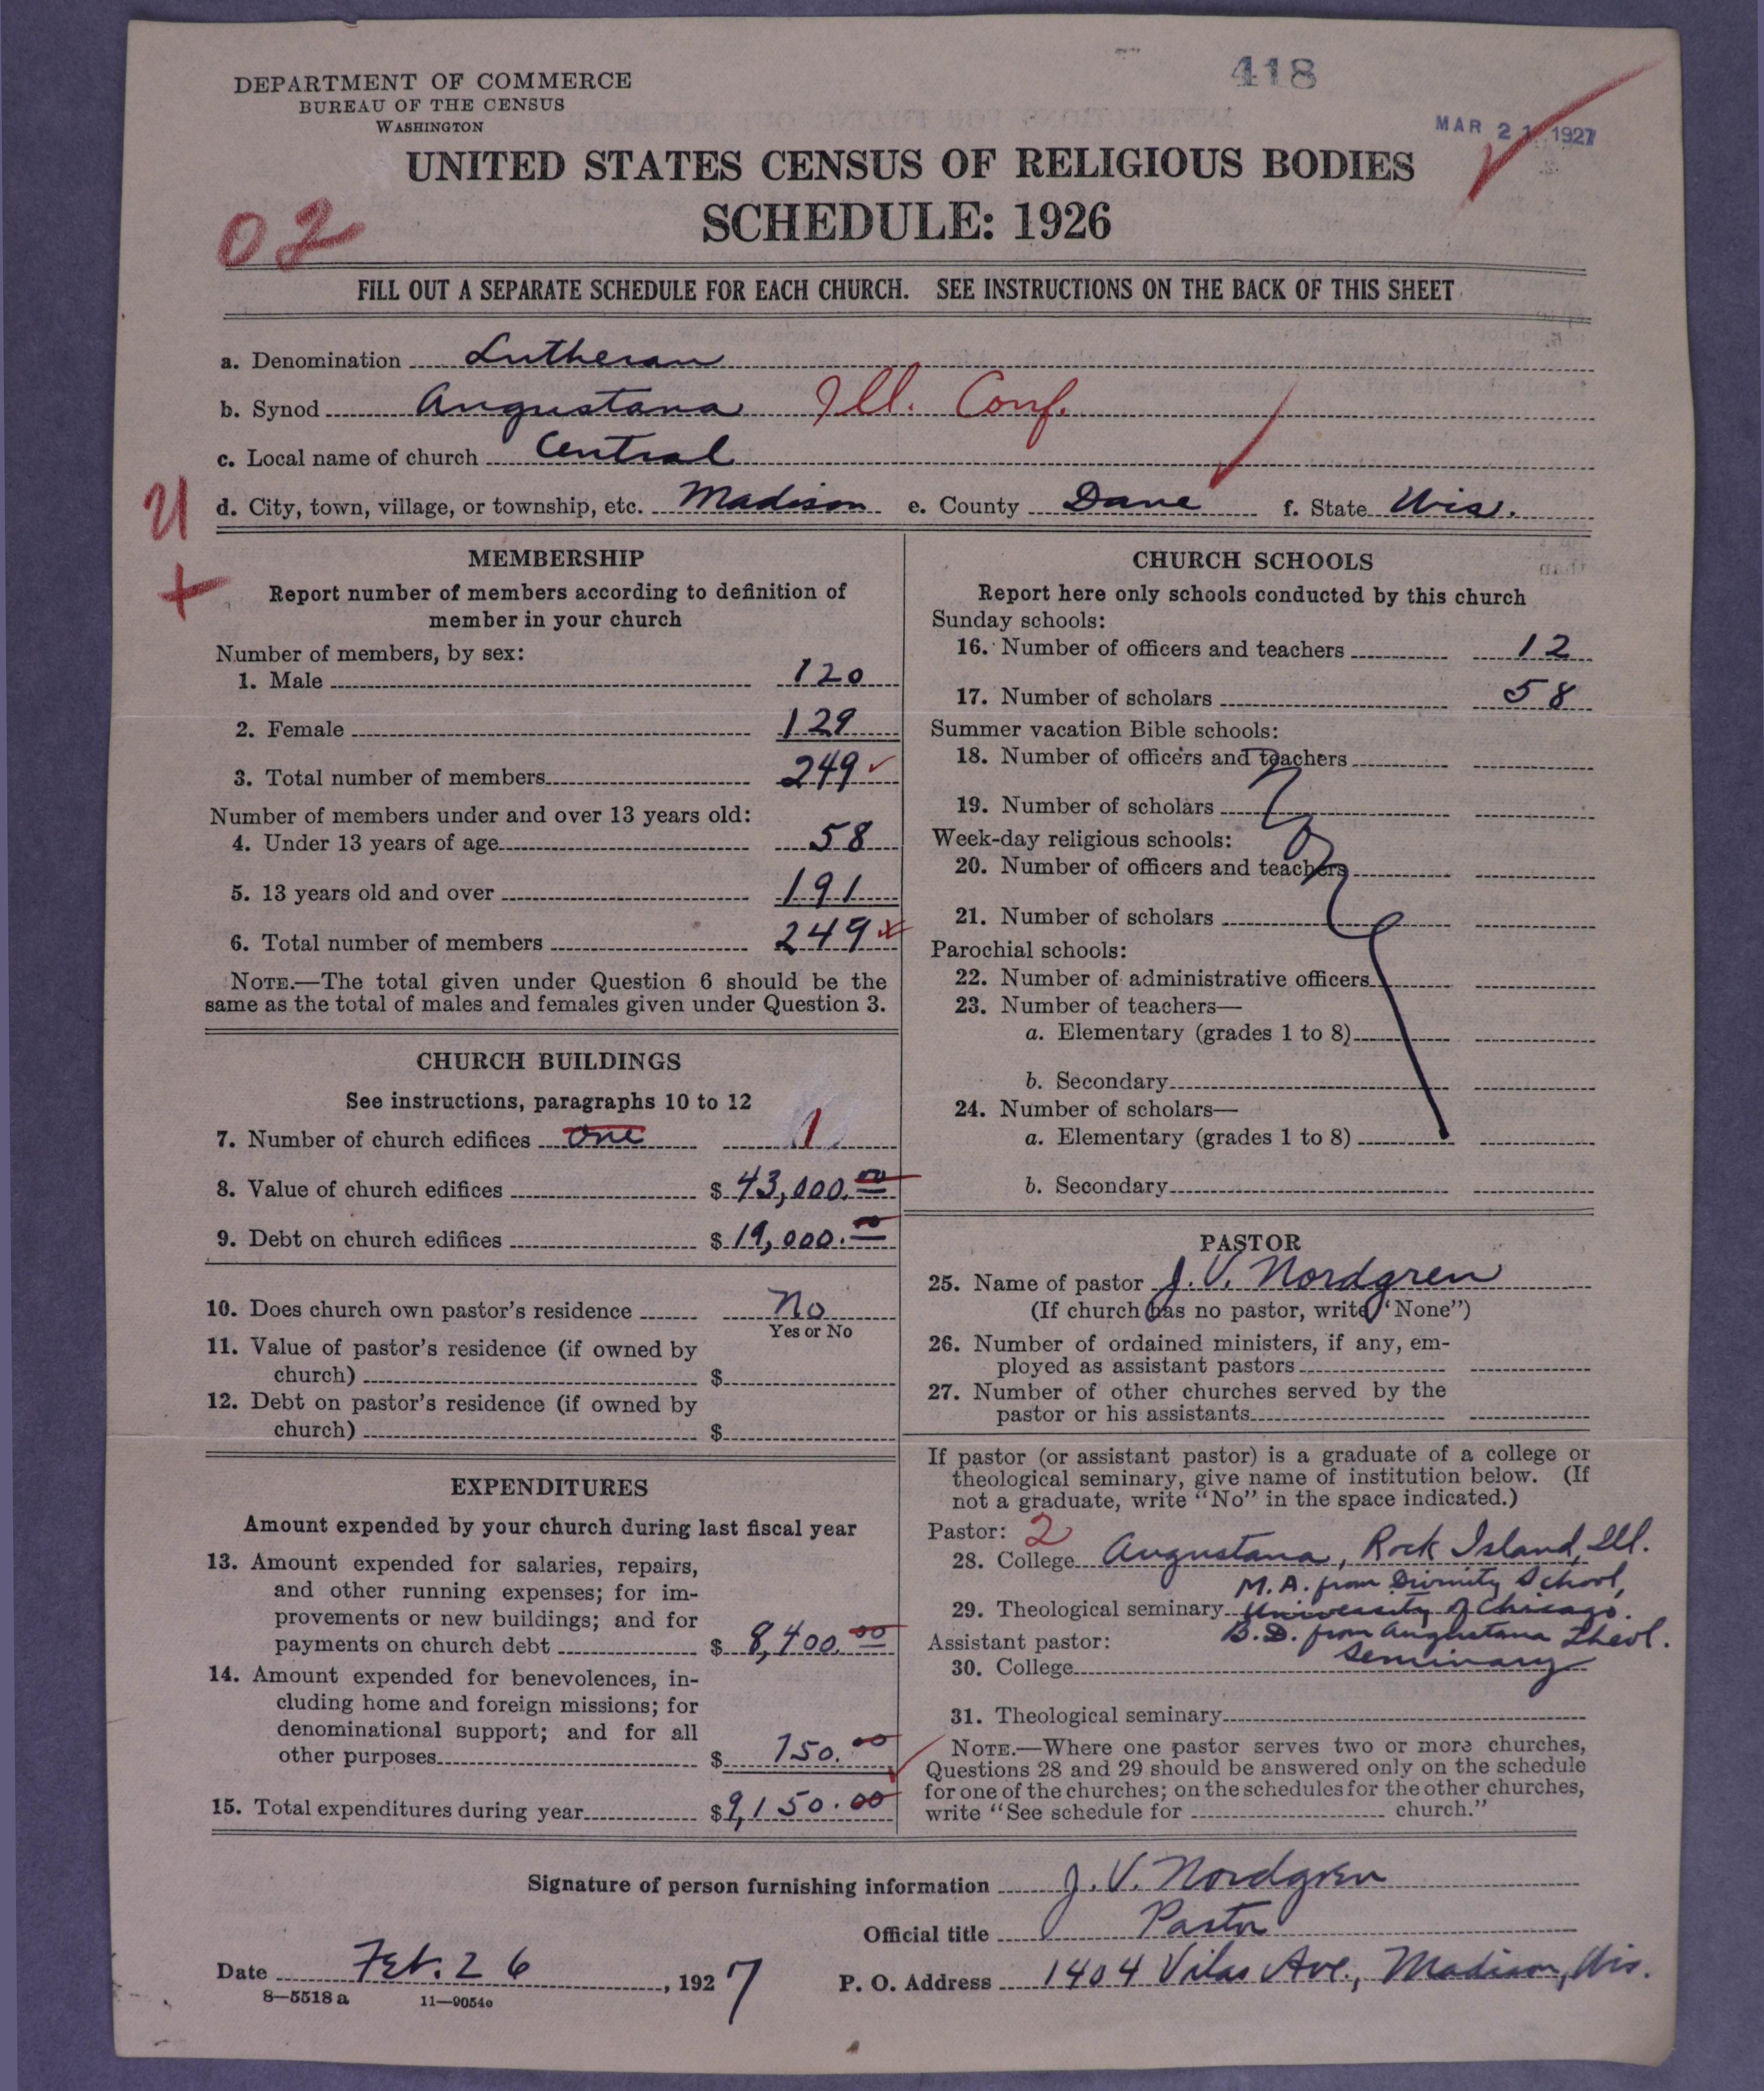 418
DEPARTMENT OF COMMERCE
BUREAU OF THE CENSUS
WASHINGTON
MAR 21 1927
UNITED STATES CENSUS OF RELIGIOUS BODIES
SCHEDULE: 1926
02
FILL OUT A SEPARATE SCHEDULE FOR EACH CHURCH. SEE INSTRUCTIONS ON THE BACK OF THIS SHEET
a. Denomination Lutheran
b. Synod Augustana Ill. Conf.
c. Local name of church Central
d. City, town, village, or township, etc. Madison e. County Dane f. State Wis.
MEMBERSHIP
Report number of members according to definition of
member in your church
Number of members, by sex:
1. Male 120
2. Female 129
3. Total number of members 249
Number of members under and over 13 years old:
4. Under 13 years of age 58
5. 13 years old and over 191
6. Total number of members 249
NOTE.—The total given under Question 6 should be the
same as the total of males and females given under Question 3.
CHURCH BUILDINGS
See instructions, paragraphs 10 to 12
7. Number of church edifices one 1
8. Value of church edifices $ 43,000.00
9. Debt on church edifices $ 19,000.00
10. Does church own pastor's residence No
Yes or No
11. Value of pastor's residence (if owned by
church) $
12. Debt on pastor's residence (if owned by
church) $
EXPENDITURES
Amount expended by your church during last fiscal year
13. Amount expended for salaries, repairs,
and other running expenses; for im-
provements or new buildings; and for
payments on church debt $ 8,400.00
14. Amount expended for benevolences, in-
cluding home and foreign missions; for
denominational support; and for all
other purposes $ 750.00
15. Total expenditures during year $ 9,150.00
CHURCH SCHOOLS
Report here only schools conducted by this church
Sunday schools:
16. Number of officers and teachers 12
17. Number of scholars 58
Summer vacation Bible schools:
18. Number of officers and teachers
19. Number of scholars
Week-day religious schools:
20. Number of officers and teachers
21. Number of scholars
Parochial schools:
22. Number of administrative officers
23. Number of teachers—
a. Elementary (grades 1 to 8)
b. Secondary
24. Number of scholars—
a. Elementary (grades 1 to 8)
b. Secondary
PASTOR
25. Name of pastor J. V. Nordgren
(If church has no pastor, write "None")
26. Number of ordained ministers, if any, em-
ployed as assistant pastors
27. Number of other churches served by the
pastor or his assistants
If pastor (or assistant pastor) is a graduate of a college or
theological seminary, give name of institution below. (If
not a graduate, write "No" in the space indicated.)
Pastor: 2
28. College Augustana, Rock Island, Ill.
M.A. from Divinity School,
29. Theological seminary University of Chicago.
B.D. from Augustana Theol.
Assistant pastor:
Seminary
30. College
31. Theological seminary
NOTE.—Where one pastor serves two or more churches,
Questions 28 and 29 should be answered only on the schedule
for one of the churches; on the schedules for the other churches,
write "See schedule for church."
Signature of person furnishing information J. V. Nordgren
Official title Pastor
Date Feb. 26, 1927
P. O. Address 1404 Vilas Ave., Madison, Wis.
8—5518 a 11—9054c